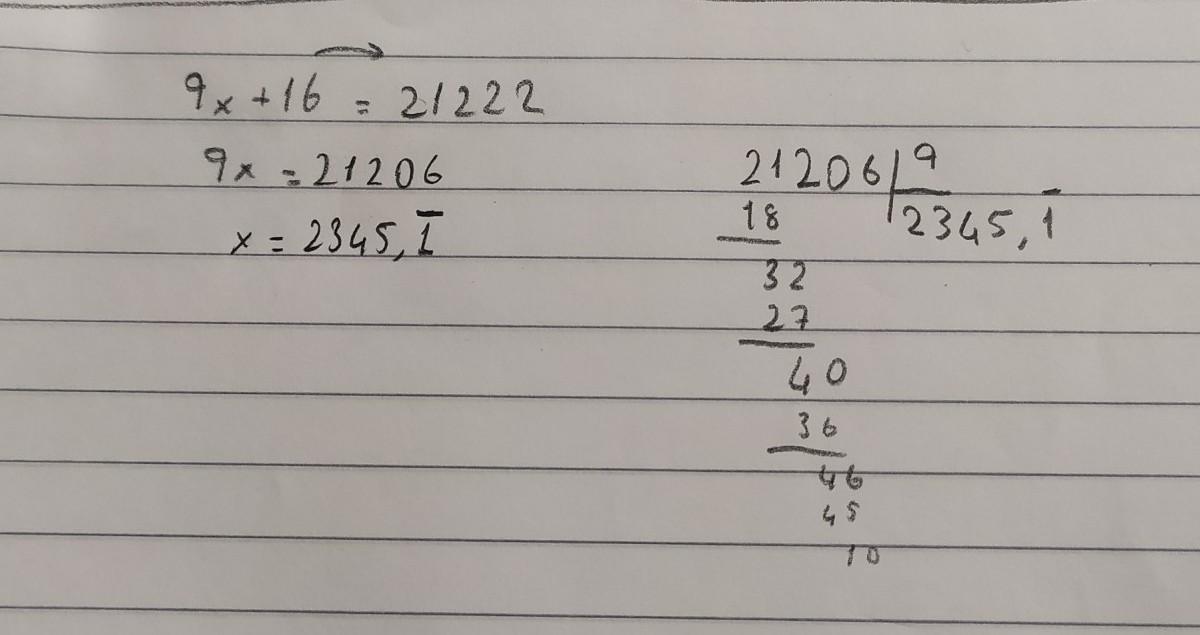 9x + 16 = 21222
9x = 21206
x = 2345,1̅
21206 | 9
18
2345,1̅
32
27
40
36
46
45
10